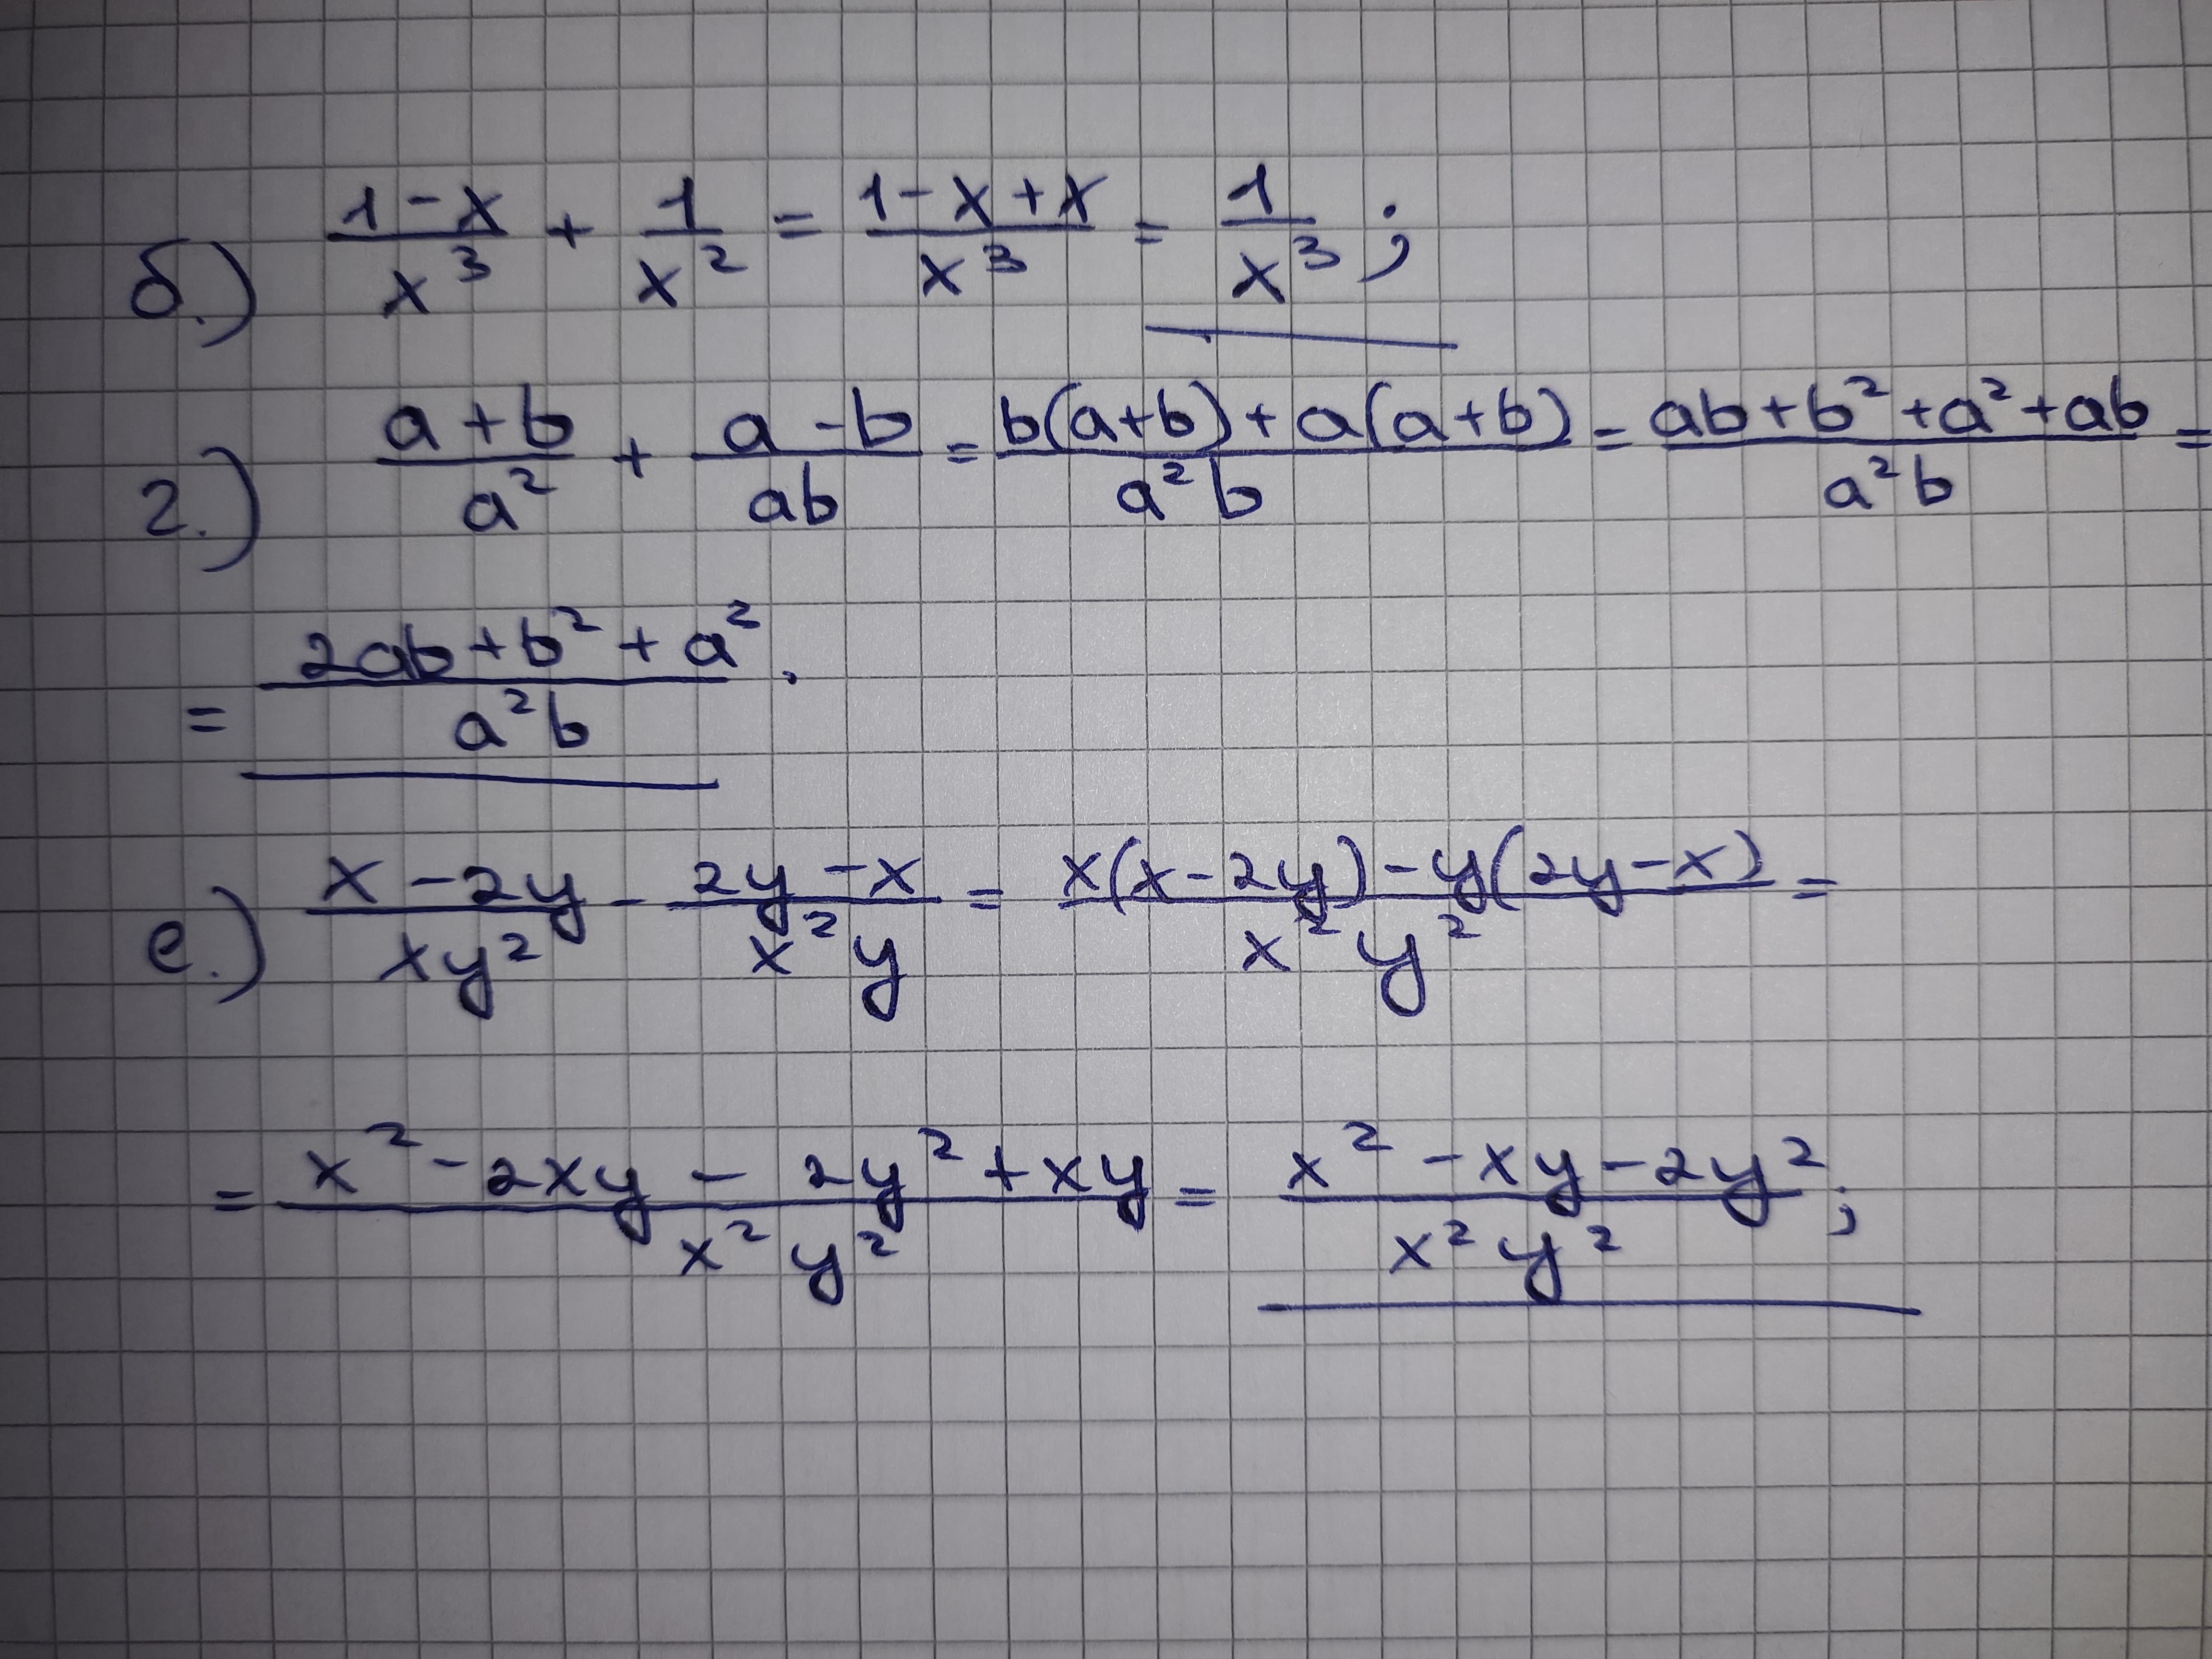 б.) (1-x)/x³ + 1/x² = (1-x+x)/x³ = 1/x³ ;
г.) (a+b)/a² + (a-b)/ab = (b(a+b)+a(a+b))/a²b = (ab+b²+a²+ab)/a²b =
= (2ab+b²+a²)/a²b .
е.) (x-2y)/xy² - (2y-x)/x²y = (x(x-2y)-y(2y-x))/x²y² =
= (x²-2xy-2y²+xy)/x²y² = (x²-xy-2y²)/x²y² ;